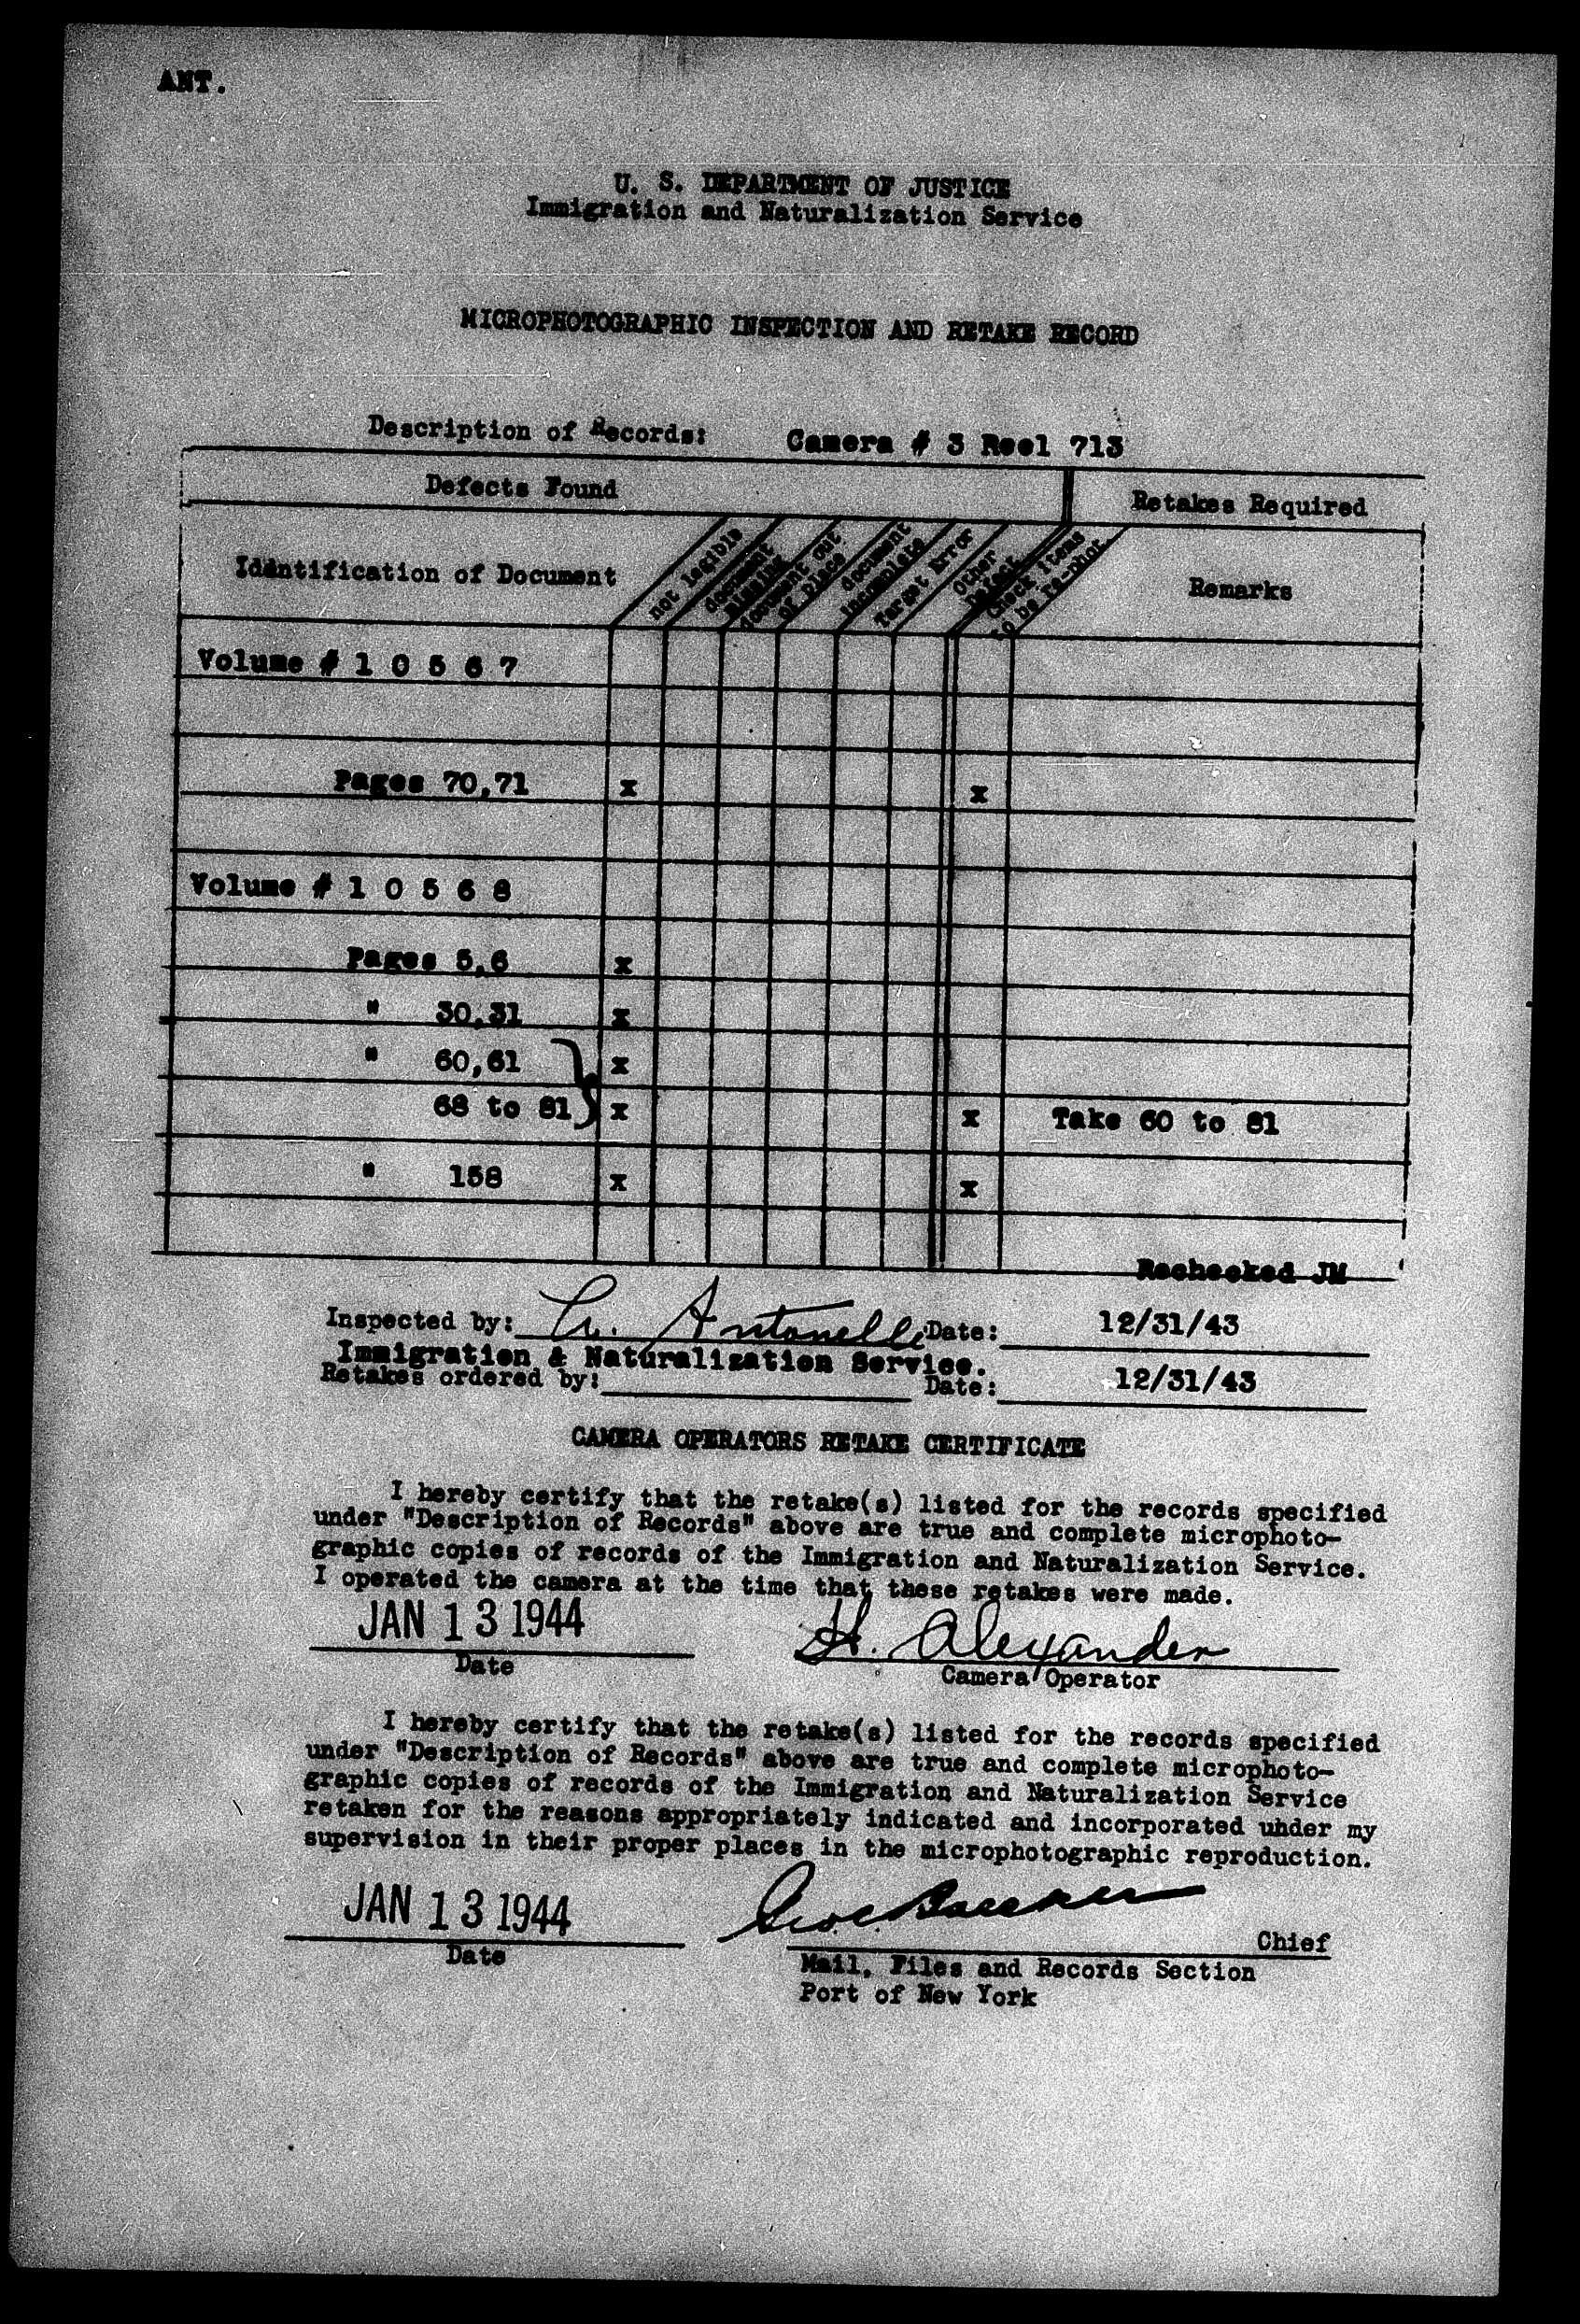 ANT.
U. S. DEPARTMENT OF JUSTICE
Immigration and Naturalization Service
MICROPHOTOGRAPHIC INSPECTION AND RETAKE RECORD
Description of Records: Camera # 3 Reel 713
Defects Found
Retakes Required
Identification of Document
not legible
document missing
document out of place
document incomplete
Target Error
Other Defect
Check items to be re-phot.
Remarks
Volume # 1 0 5 6 7
Pages 70,71 x x
Volume # 1 0 5 6 8
Pages 5,6 x
" 30,31 x
" 60,61 x
68 to 81 x x Take 60 to 81
" 158 x x
Rechecked JM
Inspected by: Antonelli Date: 12/31/43
Immigration & Naturalization Service.
Retakes ordered by: Date: 12/31/43
CAMERA OPERATORS RETAKE CERTIFICATE
I hereby certify that the retake(s) listed for the records specified
under "Description of Records" above are true and complete microphoto-
graphic copies of records of the Immigration and Naturalization Service.
I operated the camera at the time that these retakes were made.
JAN 13 1944 H. Alexander
Date Camera Operator
I hereby certify that the retake(s) listed for the records specified
under "Description of Records" above are true and complete microphoto-
graphic copies of records of the Immigration and Naturalization Service
retaken for the reasons appropriately indicated and incorporated under my
supervision in their proper places in the microphotographic reproduction.
JAN 13 1944
Chief
Date Mail, Files and Records Section
Port of New York